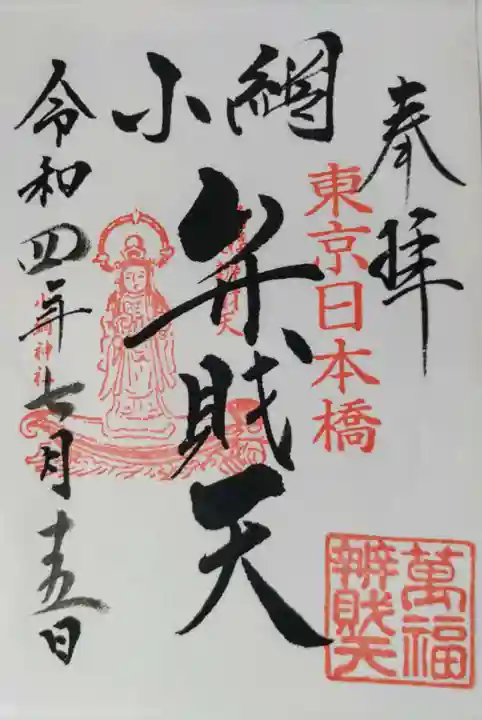 奉拝
東京日本橋
小網
弁財天
令和四年七月十五日
小網神社
萬福
辨財天